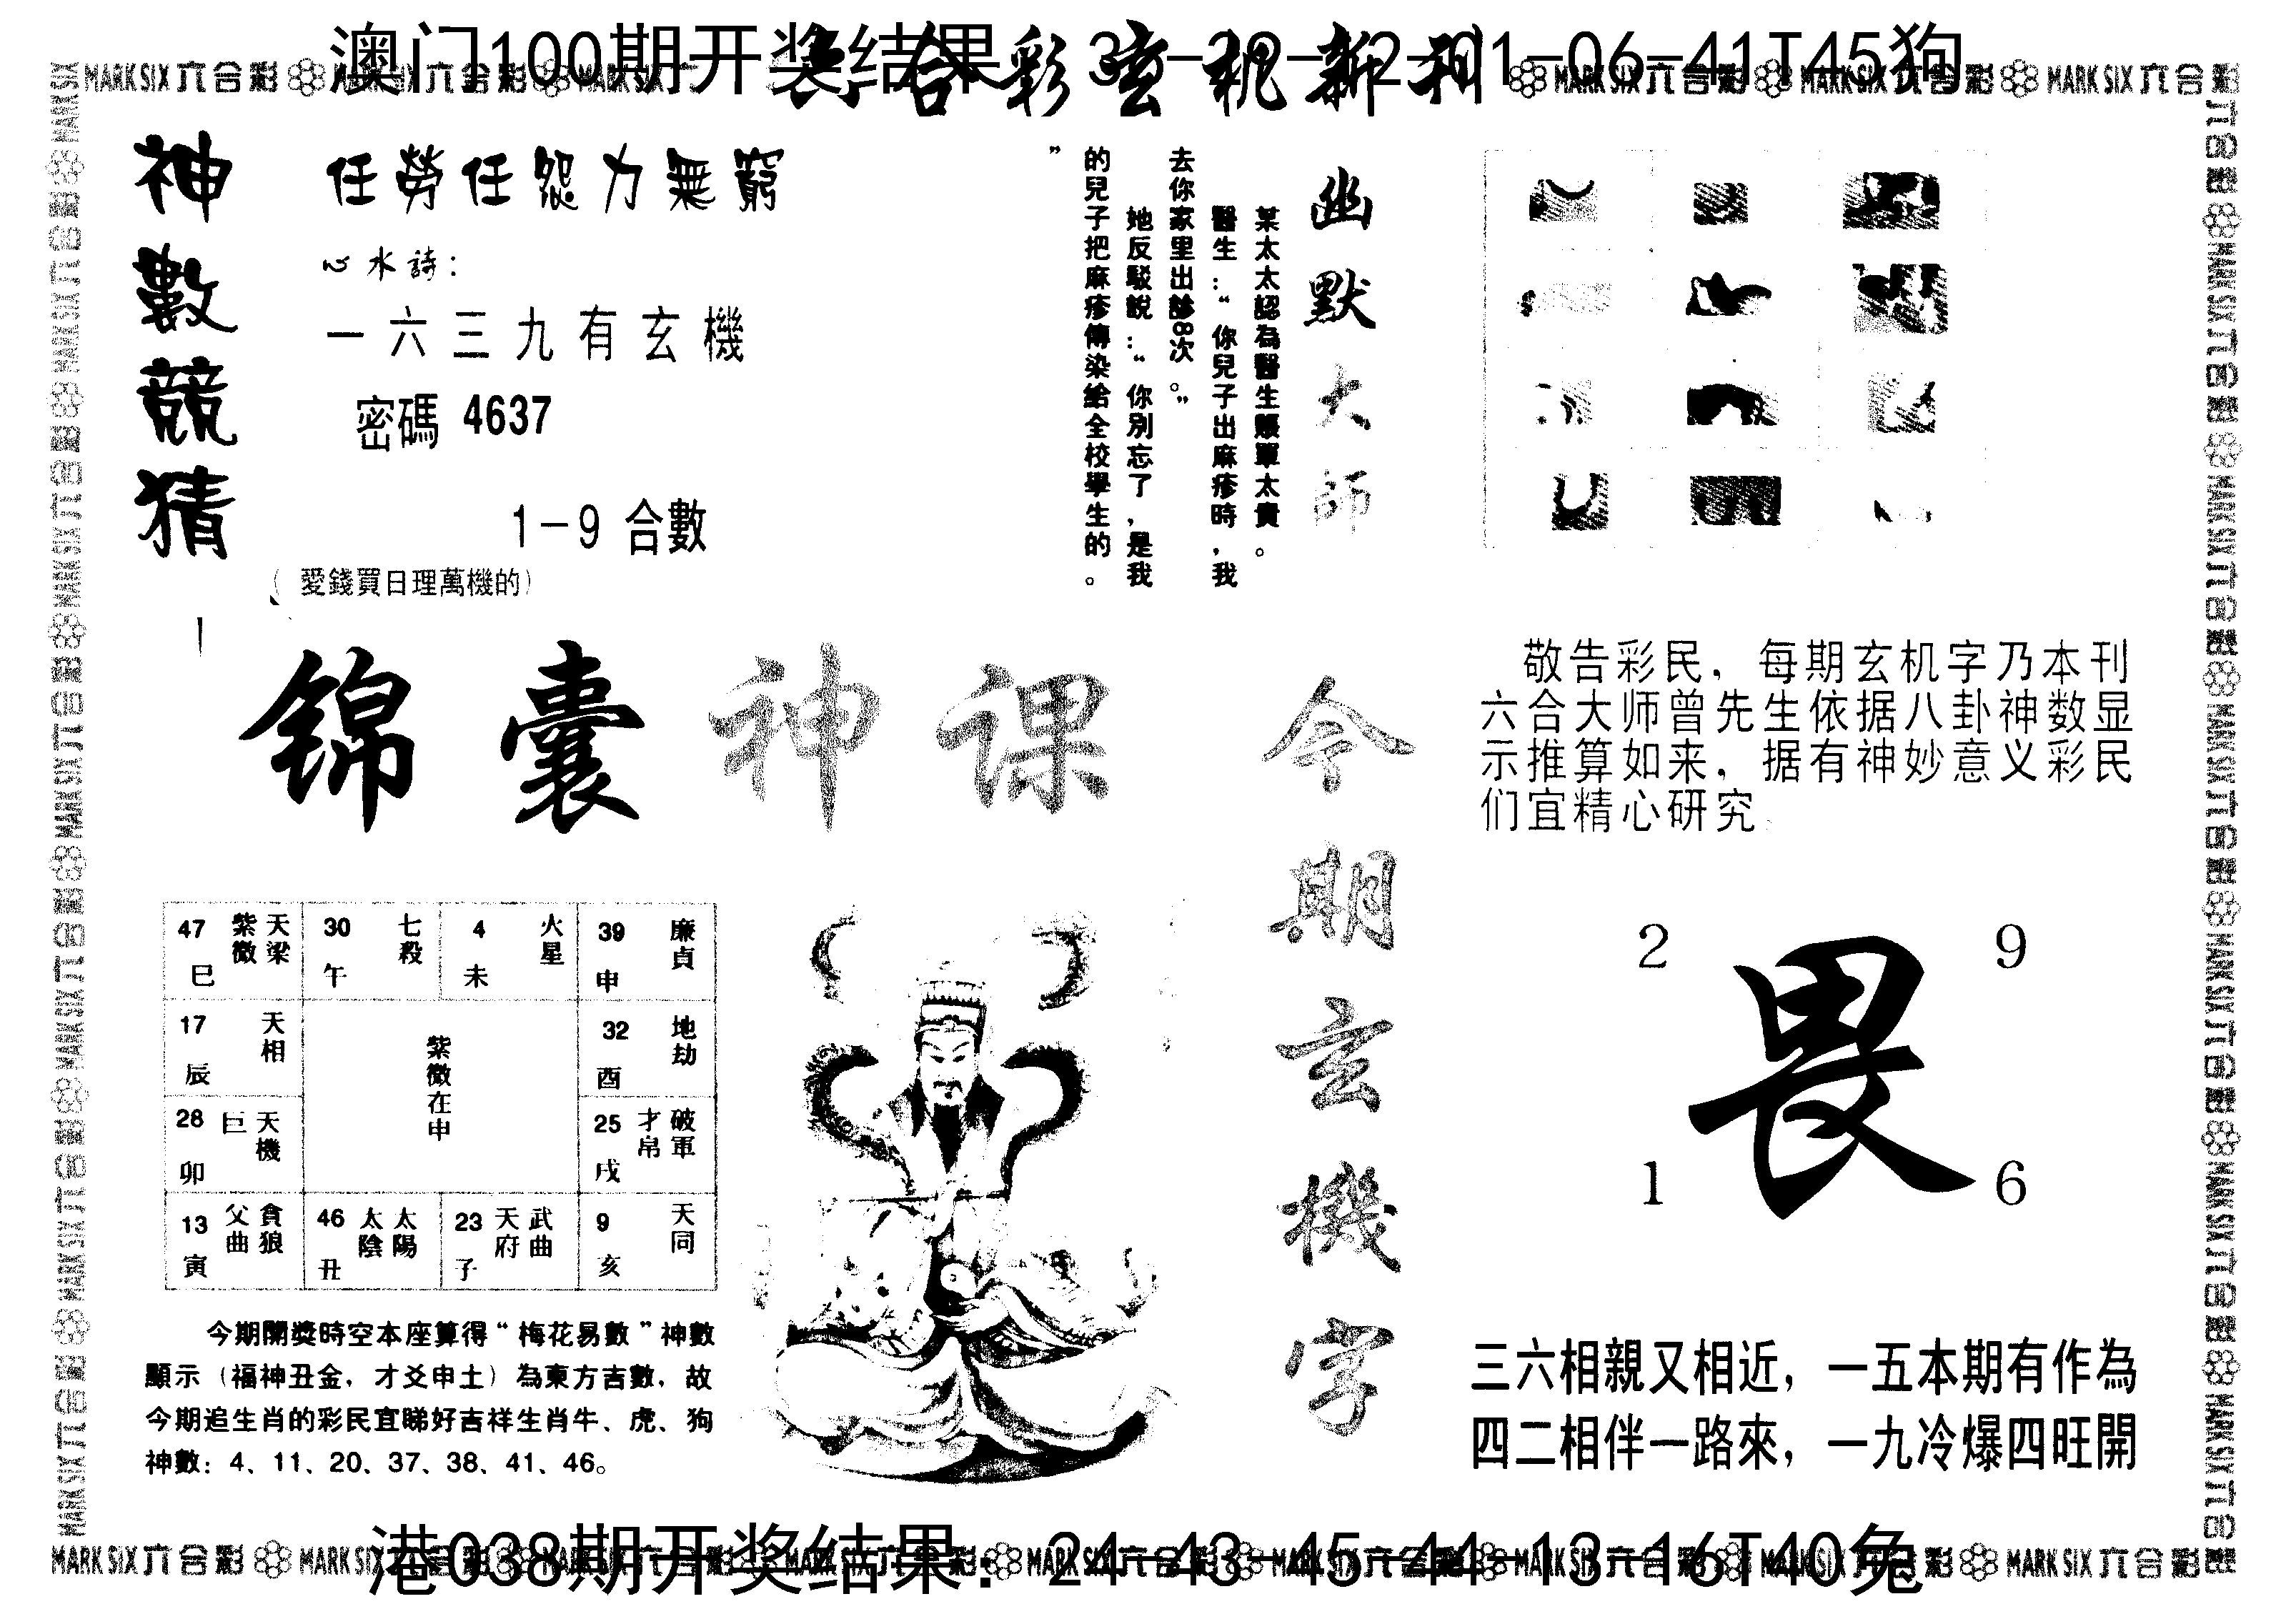 澳门100期开奖结果
01-06-41T45狗
六合彩玄机新刊
MARK SIX 六合彩
神數競猜
任勞任怨力無窮
心水詩：
一六三九有玄機
密碼 4637
1-9 合數
（愛錢買日理萬機的）
幽默大師
某太太認為醫生賬單太貴。
醫生：“你兒子出麻疹時，我
去你家里出診8次。”
她反駁說：“你別忘了，是我
的兒子把麻疹傳染給全校學生的。
”
锦囊神课
今期玄機字
敬告彩民，每期玄机字乃本刊
六合大师曾先生依据八卦神数显
示推算如来，据有神妙意义彩民
们宜精心研究
47 紫微 天梁 巳
30 七殺 午
4 火星 未
39 廉貞 申
17 天相 辰
紫微在申
32 地劫 酉
28 巨 天機 卯
25 才帛 破軍 戌
13 父曲 貪狼 寅
46 太陰 太陽 丑
23 天府 武曲 子
9 天同 亥
2 9
畏
1 6
今期開獎時空本座算得“梅花易數”神數
顯示（福神丑金，才爻申土）為東方吉數，故
今期追生肖的彩民宜睇好吉祥生肖牛、虎、狗
神數：4、11、20、37、38、41、46。
三六相親又相近，一五本期有作為
四二相伴一路來，一九冷爆四旺開
港038期开奖结果：24-43-45-44-13-16T40兔